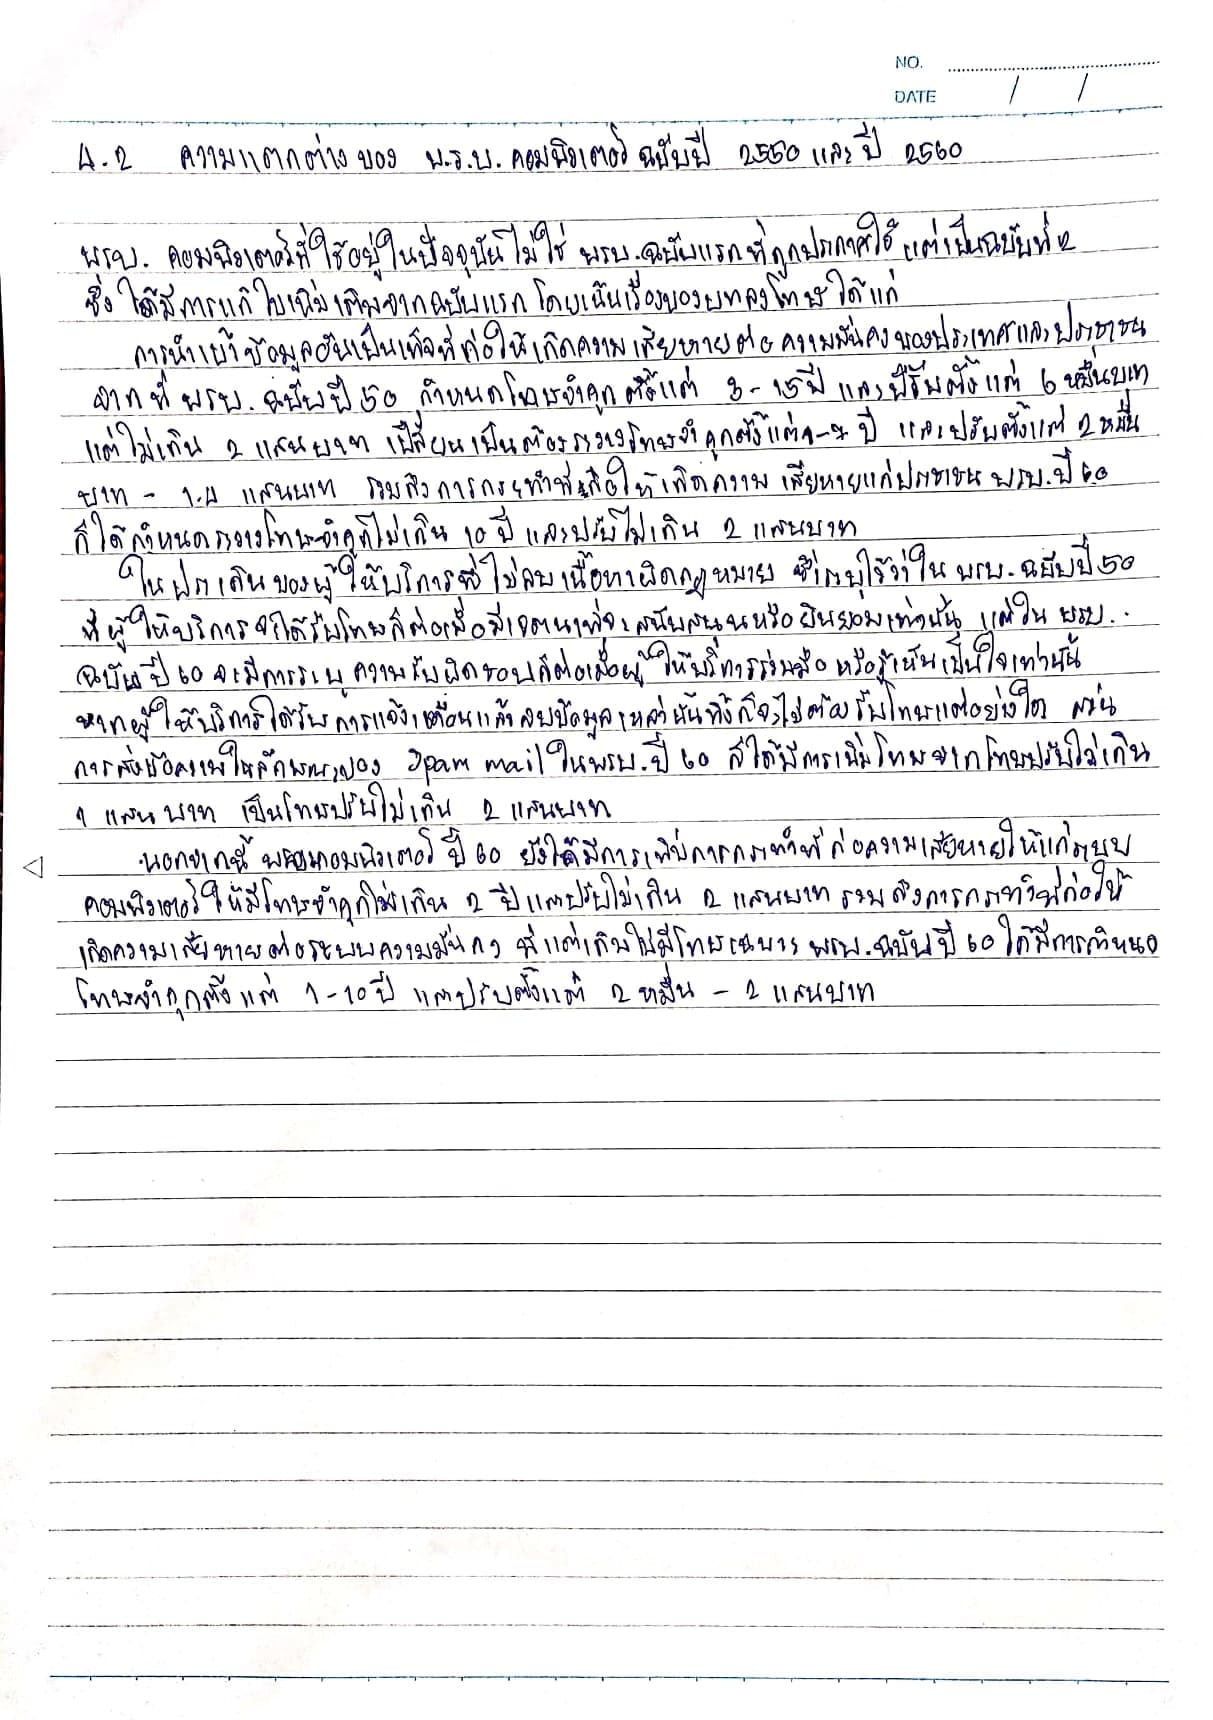 NO.
DATE / /
4.2 ความแตกต่างของ พ.ร.บ. คอมพิวเตอร์ ฉบับปี 2550 และ ปี 2560
พรบ. คอมพิวเตอร์ที่ใช้อยู่ในปัจจุบันไม่ใช่ พรบ.ฉบับแรกที่ถูกประกาศใช้ แต่เป็นฉบับที่ 2
ซึ่งได้มีการแก้ไขเพิ่มเติมจากฉบับแรก โดยเน้นเรื่องของบทลงโทษ ได้แก่
การนำเข้าข้อมูลอันเป็นเท็จที่ก่อให้เกิดความเสียหายต่อความมั่นคงของประเทศและประชาชน
จากที่ พรบ. ฉบับปี 50 กำหนดโทษจำคุกตั้งแต่ 3-15 ปี และปรับตั้งแต่ 6 หมื่นบาท
แต่ไม่เกิน 2 แสนบาท เปลี่ยนเป็นต้องระวางโทษจำคุกตั้งแต่ 1-7 ปี และปรับตั้งแต่ 2 หมื่น
บาท - 1.4 แสนบาท รวมถึงการกระทำที่ก่อให้เกิดความเสียหายแก่ประชาชน พรบ.ปี 60
ก็ได้กำหนดระวางโทษจำคุกไม่เกิน 10 ปี และปรับไม่เกิน 2 แสนบาท
ในประเด็นของผู้ให้บริการที่ไม่ลบเนื้อหาผิดกฎหมาย ที่ระบุไว้ว่าใน พรบ.ฉบับปี 50
ที่ผู้ให้บริการจะได้รับโทษก็ต่อเมื่อมีเจตนาที่จะสนับสนุนหรือยินยอมเท่านั้น แต่ใน พรบ.
ฉบับปี 60 จะมีการระบุความรับผิดชอบก็ต่อเมื่อผู้ให้บริการร่วมมือ หรือรู้เห็นเป็นใจเท่านั้น
หากผู้ให้บริการได้รับการแจ้งเตือนแล้วลบข้อมูลเหล่านั้นทิ้งก็จะไม่ต้องรับโทษแต่อย่างใด ส่วน
การส่งข้อความในลักษณะของ Spam mail ในพรบ.ปี 60 ก็ได้มีการเพิ่มโทษจากโทษปรับไม่เกิน
1 แสนบาท เป็นโทษปรับไม่เกิน 2 แสนบาท
นอกจากนี้ พรบ.คอมพิวเตอร์ ปี 60 ยังได้มีการเพิ่มการกระทำที่ก่อความเสียหายให้แก่ระบบ
คอมพิวเตอร์ ให้มีโทษจำคุกไม่เกิน 2 ปี และปรับไม่เกิน 2 แสนบาท รวมถึงการกระทำที่ก่อให้
เกิดความเสียหายต่อระบบความมั่นคง ที่แต่เดิมไม่มีโทษเฉพาะ พรบ.ฉบับปี 60 ได้มีการกำหนด
โทษจำคุกตั้งแต่ 1-10 ปี และปรับตั้งแต่ 2 หมื่น - 2 แสนบาท